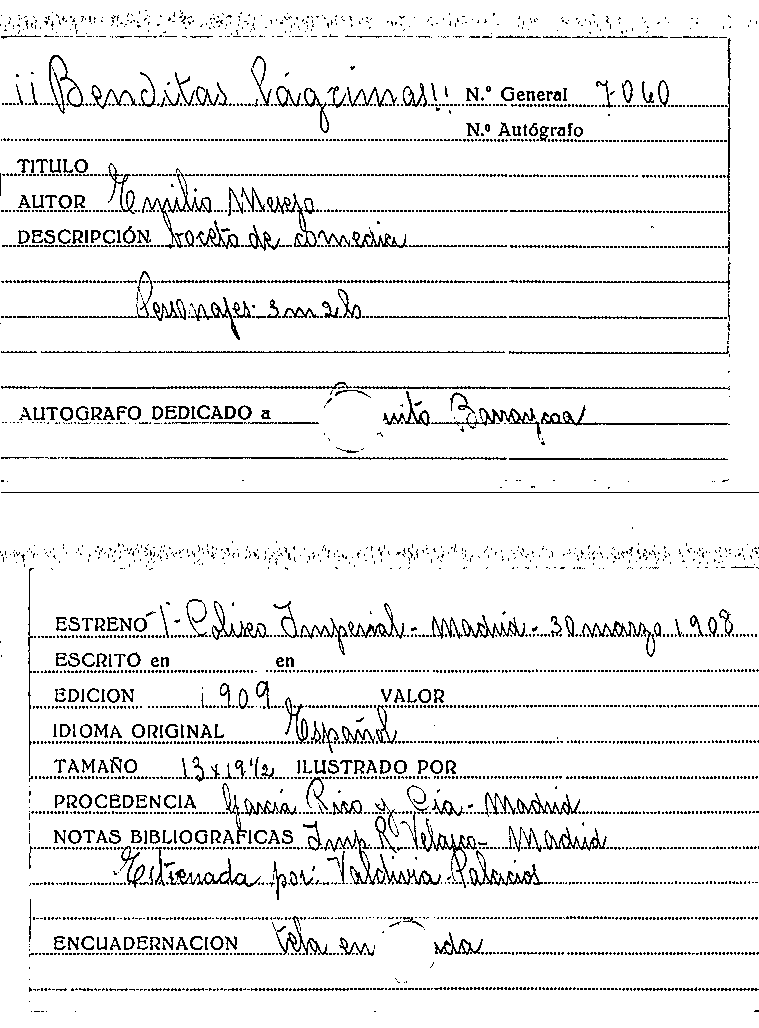 ¡¡Benditas lágrimas!! N.º General 7060
N.º Autógrafo
TITULO
AUTOR Emilio Mesejo
DESCRIPCIÓN boceto de comedia
Personajes. 3 m 2 h
AUTOGRAFO DEDICADO a
ESTRENO T- Coliseo Imperial - Madrid - 30 marzo 1908
ESCRITO en en
EDICION 1909 VALOR
IDIOMA ORIGINAL Español
TAMAÑO 13 x 19 1/2 ILUSTRADO POR
PROCEDENCIA García Rico y Cía - Madrid
NOTAS BIBLIOGRAFICAS Imp R. Velasco - Madrid
Estrenada por: Valdivia Palacios
ENCUADERNACION tela en